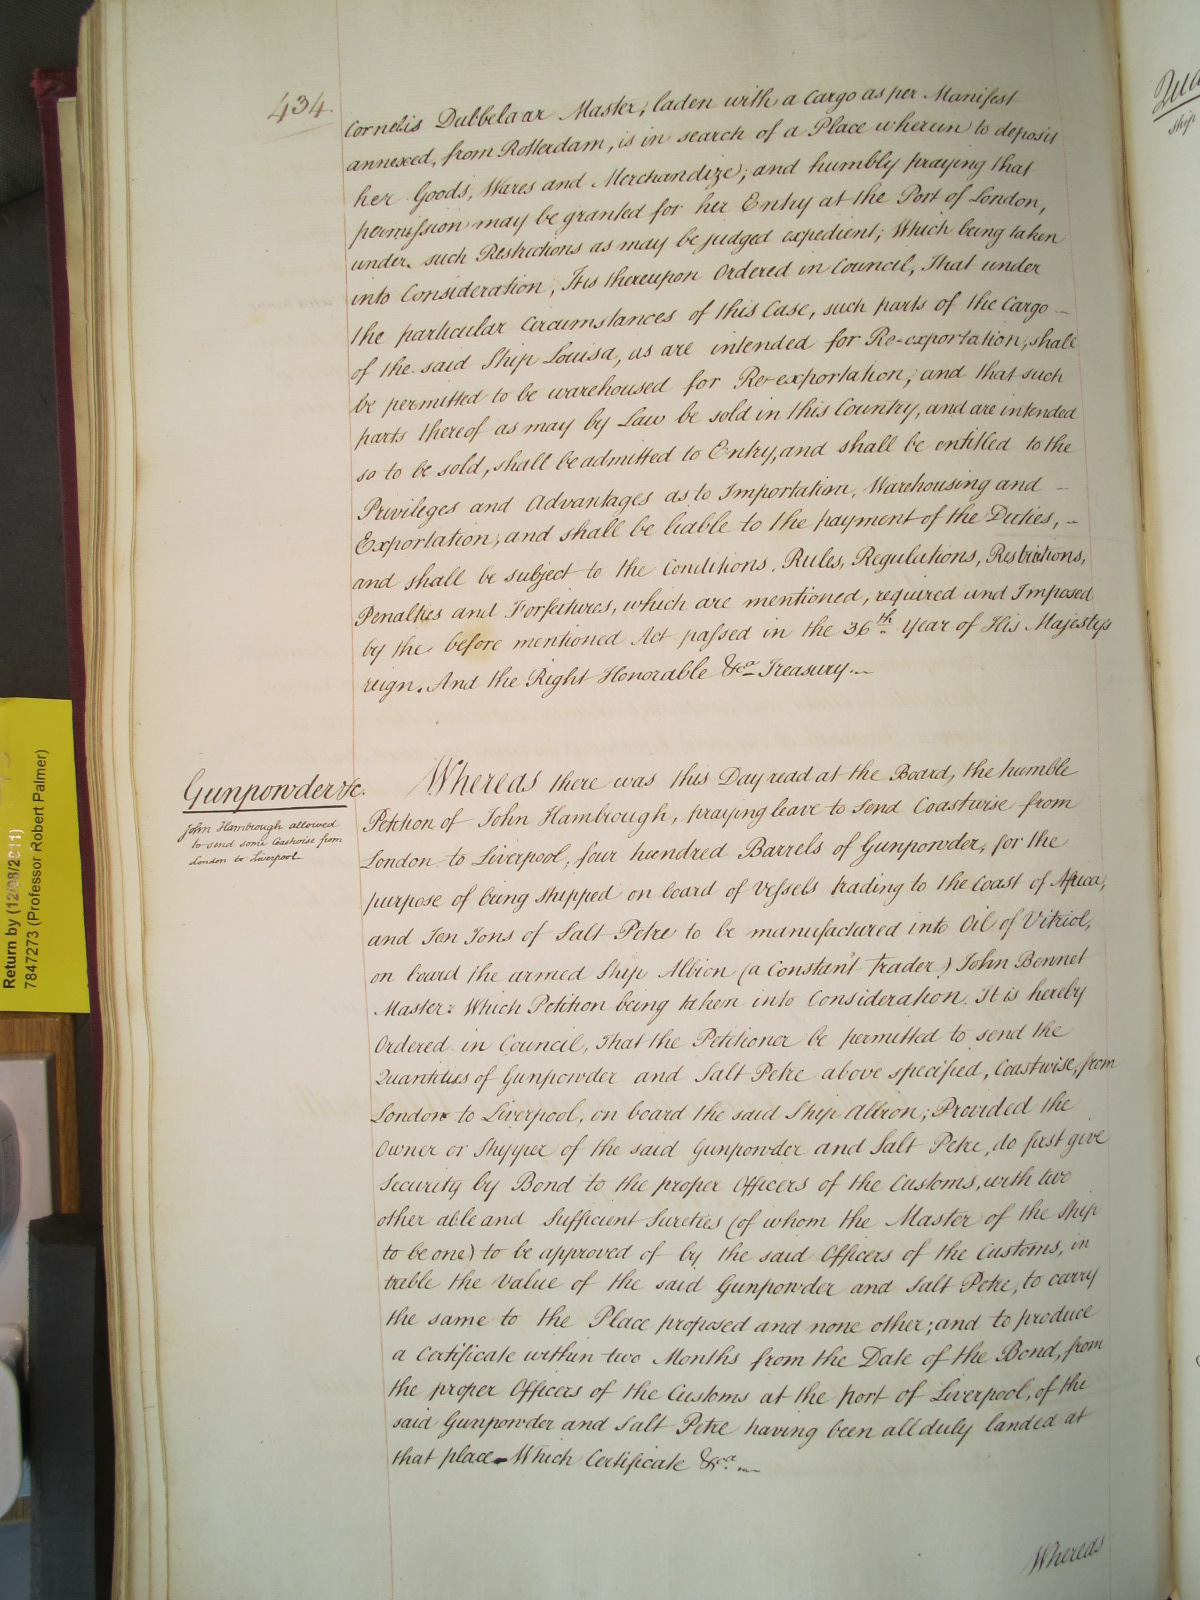 434.
Cornelis Dubbelaar Master, laden with a Cargo as per Manifest
annexed, from Rotterdam, is in search of a Place wherein to deposit
her Goods, Wares and Merchandize; and humbly praying that
permission may be granted for her Entry at the Port of London,
under such Restrictions as may be judged expedient; Which being taken
into Consideration, It is thereupon Ordered in Council, That under
the particular Circumstances of this Case, such parts of the Cargo
of the said Ship Louisa, as are intended for Re-exportation, shall
be permitted to be warehoused for Re-exportation; and that such
parts thereof as may by Law be sold in this Country, and are intended
so to be sold, shall be admitted to Entry, and shall be entitled to the
Privileges and Advantages as to Importation, Warehousing and
Exportation, and shall be liable to the payment of the Duties,
and shall be subject to the Conditions, Rules, Regulations, Restrictions,
Penalties and Forfeitures, which are mentioned, required and Imposed
by the before mentioned Act passed in the 36th Year of His Majesty's
reign. And the Right Honorable &ca Treasury.
Gunpowder &c.
John Hambrough allowed
to send some Coastwise from
London to Liverpool
Whereas there was this Day read at the Board, the humble
Petition of John Hambrough, praying leave to send Coastwise from
London to Liverpool, four hundred Barrels of Gunpowder, for the
purpose of being shipped on board of Vessels trading to the Coast of Africa,
and Ten Tons of Salt Petre to be manufactured into Oil of Vitriol,
on board the armed Ship Albion (a Constant Trader) John Bennet
Master: Which Petition being taken into Consideration. It is hereby
Ordered in Council, That the Petitioner be permitted to send the
Quantities of Gunpowder and Salt Petre above specified, Coastwise, from
London to Liverpool, on board the said Ship Albion; Provided the
Owner or Shipper of the said Gunpowder and Salt Petre, do first give
Security by Bond to the proper Officers of the Customs, with two
other able and Sufficient Sureties (of whom the Master of the Ship
to be one) to be approved of by the said Officers of the Customs, in
treble the Value of the said Gunpowder and Salt Petre, to carry
the same to the Place proposed and none other; and to produce
a Certificate within two Months from the Date of the Bond, from
the proper Officers of the Customs at the port of Liverpool, of the
said Gunpowder and Salt Petre having been all duly landed at
that place. Which Certificate &ca.
Whereas
Return by (12/08/2011)
7847273 (Professor Robert Palmer)
Ship